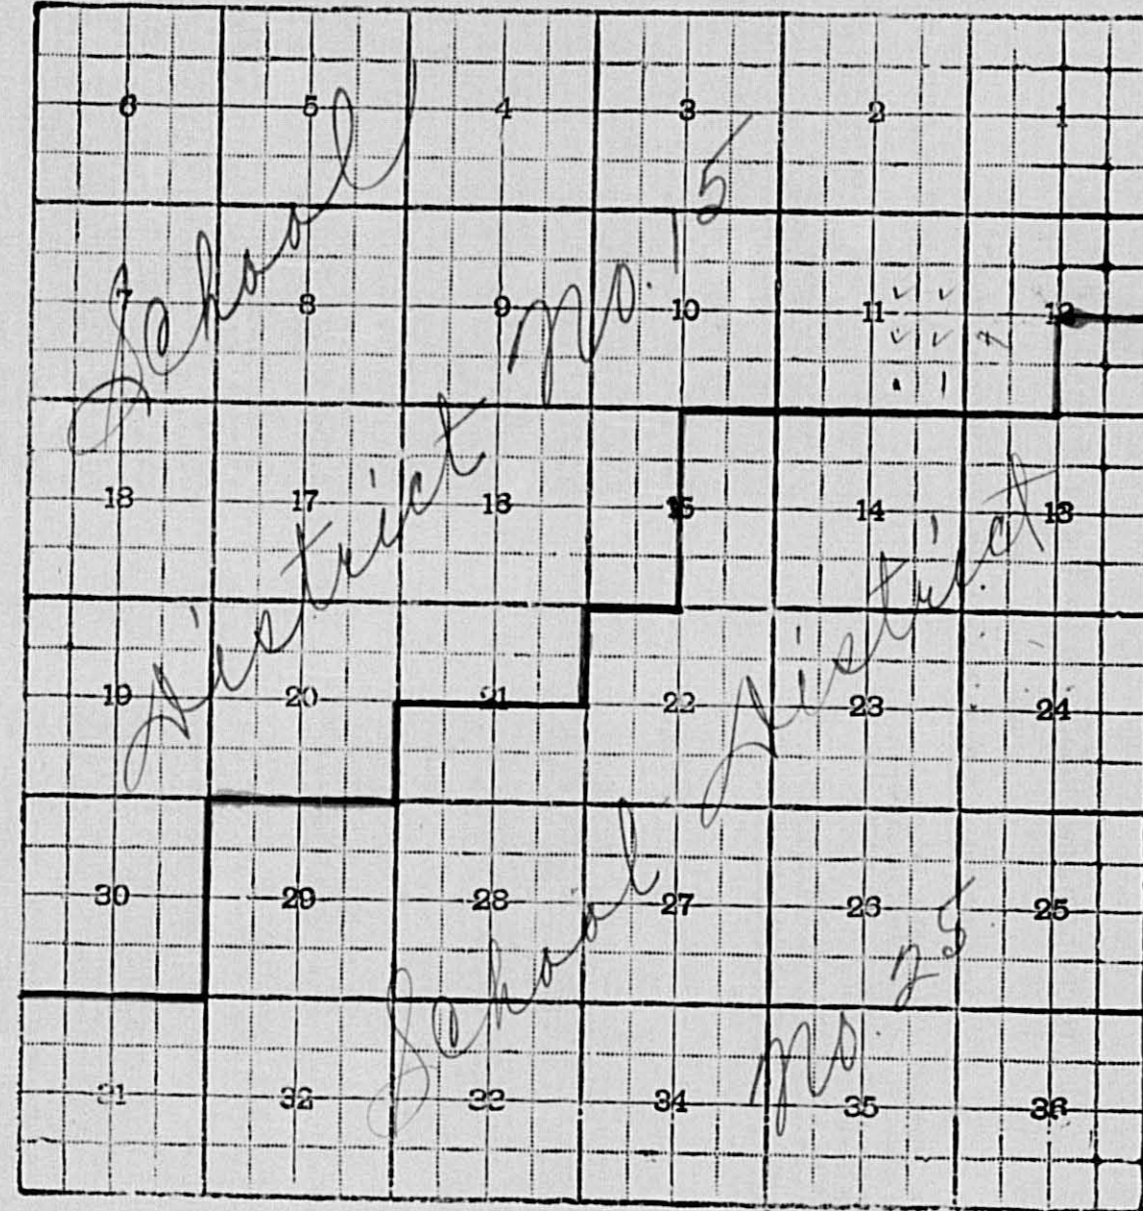 6 5 4 3 2 1
7 8 9 10 11 12
18 17 16 15 14 13
19 20 21 22 23 24
30 29 28 27 26 25
31 32 33 34 35 36
School
District No. 15
School District
No. 25